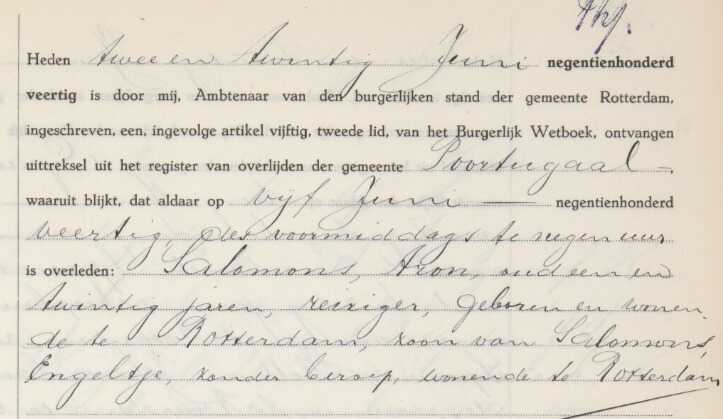 Heden twee en twintig Juni negentienhonderd
veertig is door mij, Ambtenaar van den burgerlijken stand der gemeente Rotterdam,
ingeschreven, een, ingevolge artikel vijftig, tweede lid, van het Burgerlijk Wetboek, ontvangen
uittreksel uit het register van overlijden der gemeente Poortugaal -,
waaruit blijkt, dat aldaar op vijf Juni — negentienhonderd
veertig, des voormiddags te negen uur
is overleden: Salomons, Aron, oud een en
twintig jaren, reiziger, geboren en wonen-
de te Rotterdam, zoon van Salomons,
Engeltje, zonder beroep, wonende te Rotterdam